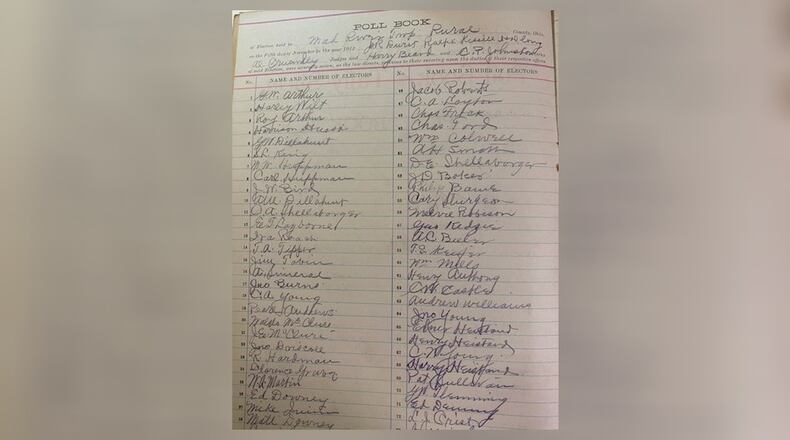 POLL BOOK
of Election held in Mad River Twp Rural County, Ohio,
on the Fifth day of November in the year 1912
Judges and Harry Beard and C. P. Johnston
of said Election, were severally sworn, as the law directs, previous to their entering upon the duties of their respective offices
No. NAME AND NUMBER OF ELECTORS
1 G.W. Arthur
2 Harley Wilt
3 Roy Arthur
4 Harrison
5 G.W. Dillahunt
6 King
7 W.W. Huffman
8 Carl Huffman
9 J.W. Bird
10 Dillahunt
11 O.A. Shellabarger
12 E.T. Layborne
13 Ira Beach
14 T.A. Tipper
15 Jim Tobin
16 Mineral
17 Jno Burns
18 C.A. Young
19 Andrews
20 Waldo McClure
21 McClure
22 Jno Driscole
23 R Hardman
24 Florence
25 Martin
26 Ed Downey
27 Mike Quinn
28 Matt Downey
No. NAME AND NUMBER OF ELECTORS
46 Jacob Roberts
47 C.A. Layton
48 Chas Freak
49 Chas Ford
50 Wm Colwell
51 A.H. Smith
52 D.E. Shellabarger
53 J.D. Baker
54 Philip
55 Cary Sturgeon
56 Melvie Robison
57 Gus Kedges
58 A.C.
59 Keifer
60 Wm Mills
61 Henry Anthony
62 Castle
63 Andrew Williams
64 Jno Young
65 Elmer Heistand
66 Henry Heistand
67 C.W. Young
68 Harry Heistand
69 Pat Sullivan
70 Flemming
71 Ed Denny
72 L.S. Crist